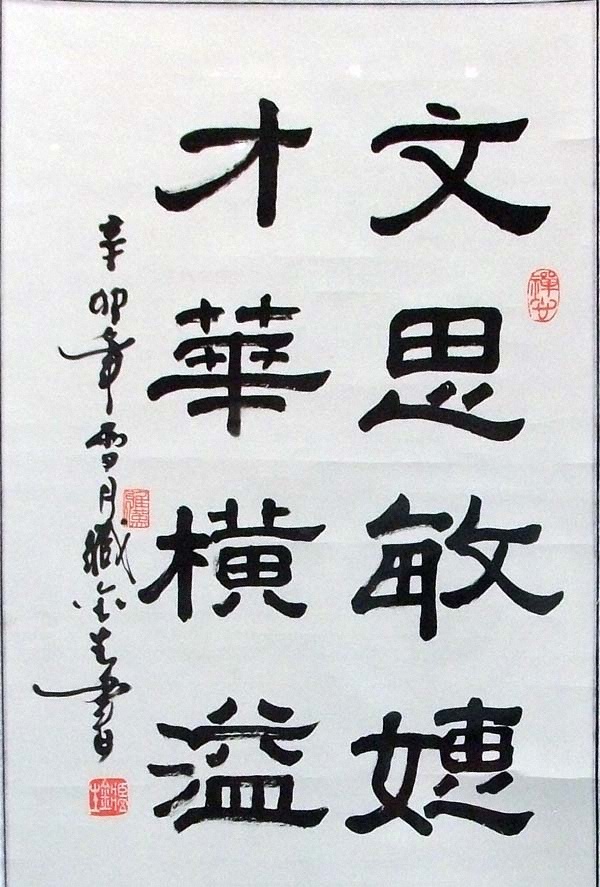 文思敏婕
才華横溢
辛卯年雪月臧金書